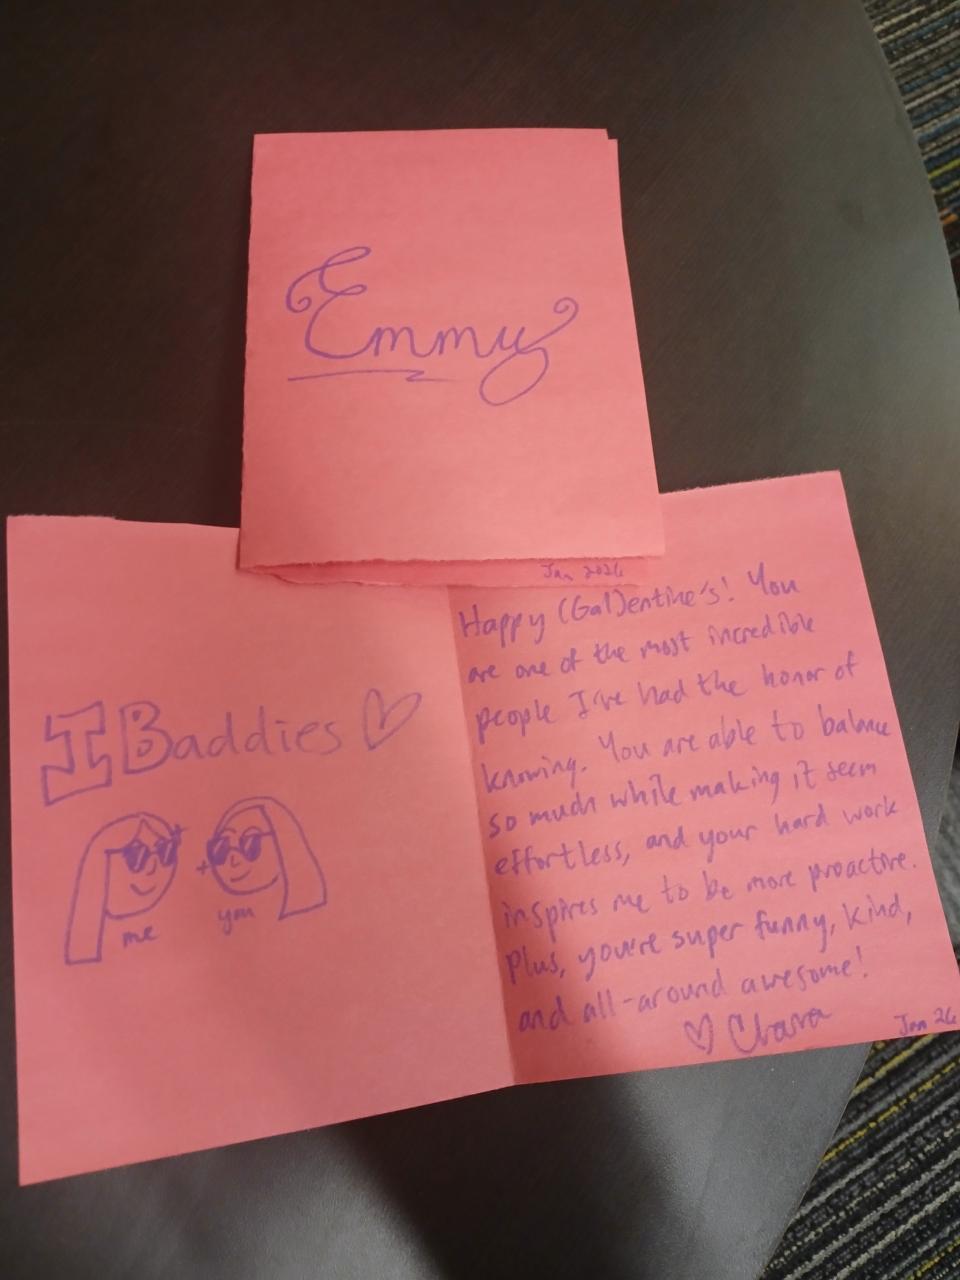 Emmy
Jan 2026
I Baddies ♡
me + you
Happy (Gal)entine's! You
are one of the most incredible
people I've had the honor of
knowing. You are able to balance
so much while making it seem
effortless, and your hard work
inspires me to be more proactive.
Plus, you're super funny, kind,
and all-around awesome!
♡ Chara
Jan 26